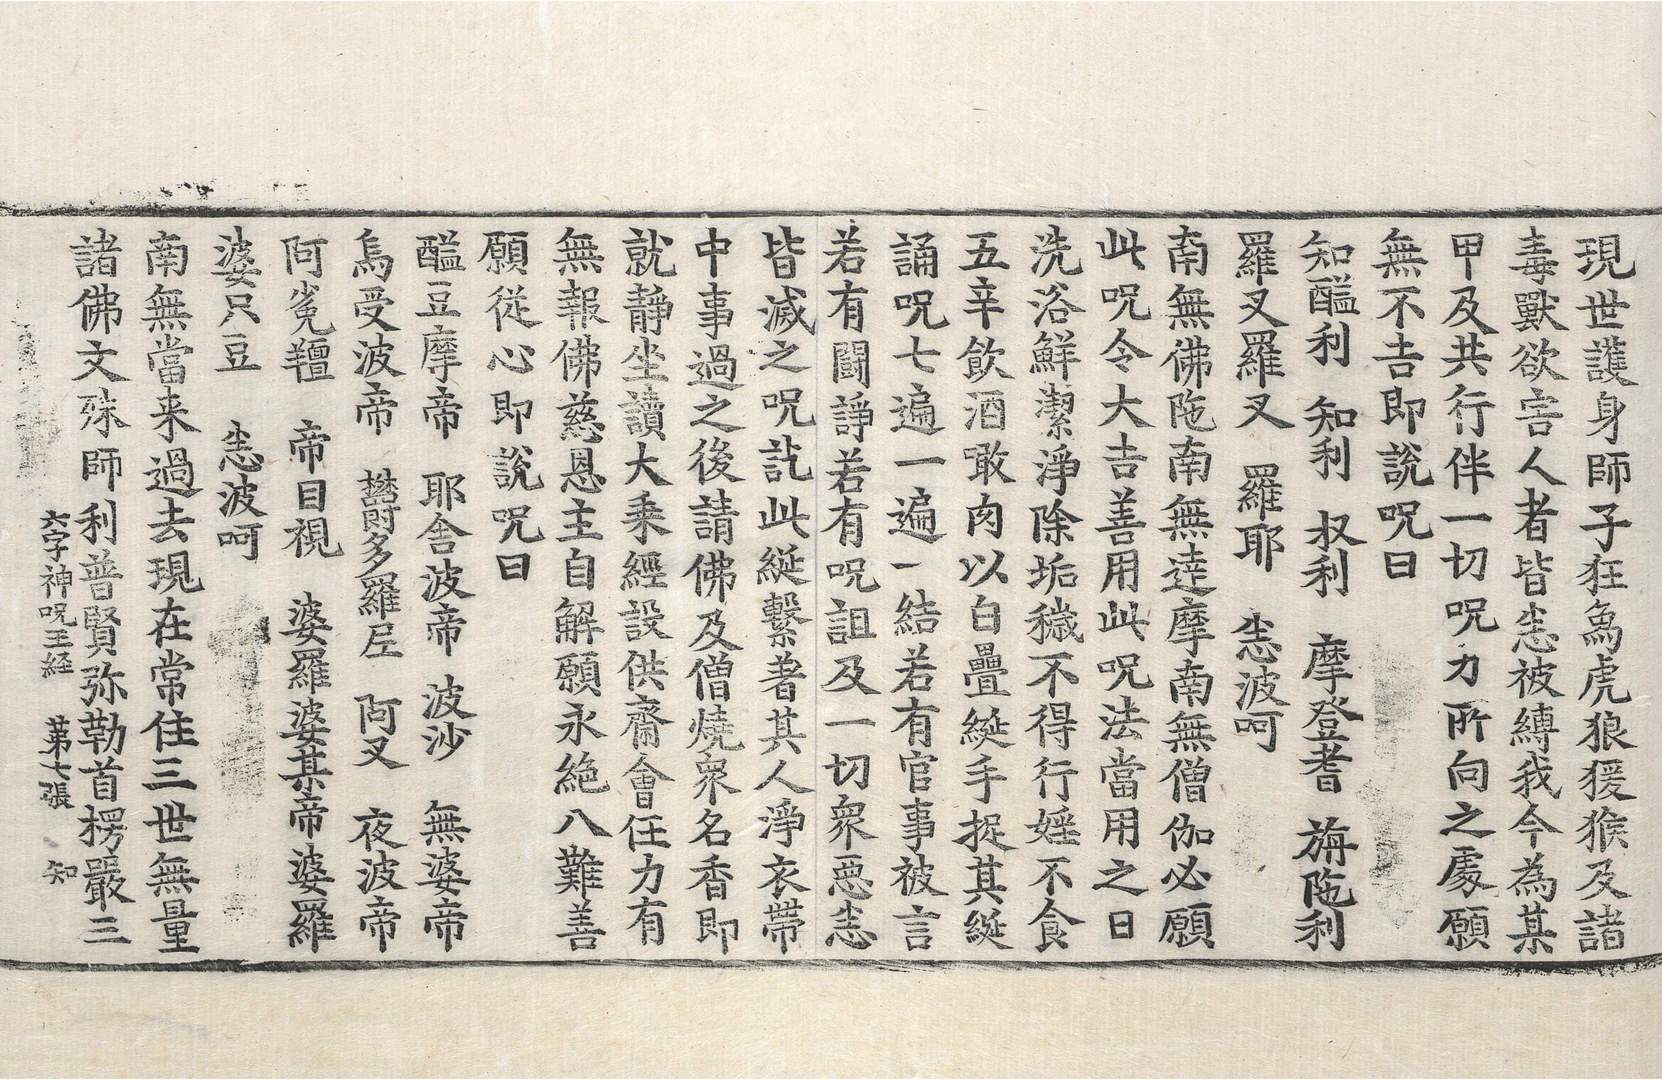 現世護身師子狂象虎狼猨猴及諸
毒獸欲害人者皆悉被縛我今為某
甲及共行伴一切呪力所向之處願
無不吉即說呪曰
知醯利　知利　叔利　摩登耆　旃陁利
羅叉羅叉　羅耶　悉波呵
南無佛陁南無達摩南無僧伽必願
此呪令大吉善用此呪法當用之日
洗浴鮮潔淨除垢穢不得行婬不食
五辛飲酒噉肉以白疊綖手捉其綖
誦呪七遍一遍一結若有官事被言
若有鬪諍若有呪詛及一切衆惡悉
皆滅之呪訖此綖繫著其人淨衣帶
中事過之後請佛及僧燒衆名香即
就靜坐讀大乘經設供齋會任力有
無報佛慈恩主自解願永絕八難善
願從心即說呪曰
醯豆摩帝　耶舍波帝　波沙　無婆帝
烏受波帝　多羅𡰱　阿叉　夜波帝
阿㝹羶　帝目視　婆羅婆某帝婆羅
婆只豆　悉波呵
南無當来過去現在常住三世無量
諸佛文殊師利普賢弥勒首楞嚴三
六字神呪王経　苐七張　知